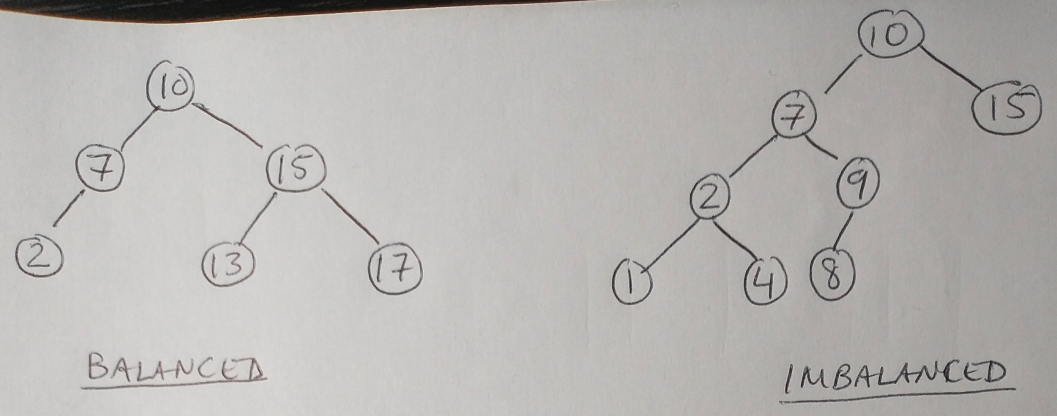 10
7 15
2 13 17
BALANCED
10
7 15
2 9
1 4 8
IMBALANCED